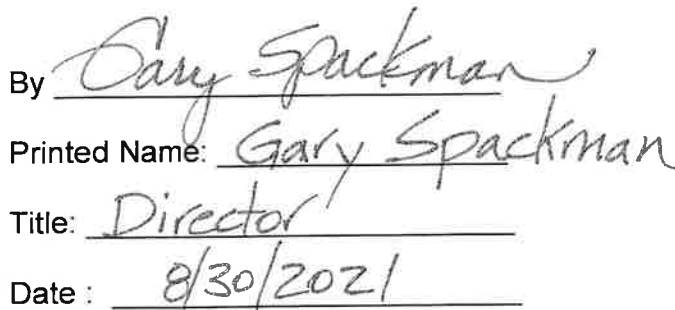 By Gary Spackman
Printed Name: Gary Spackman
Title: Director
Date : 8/30/2021